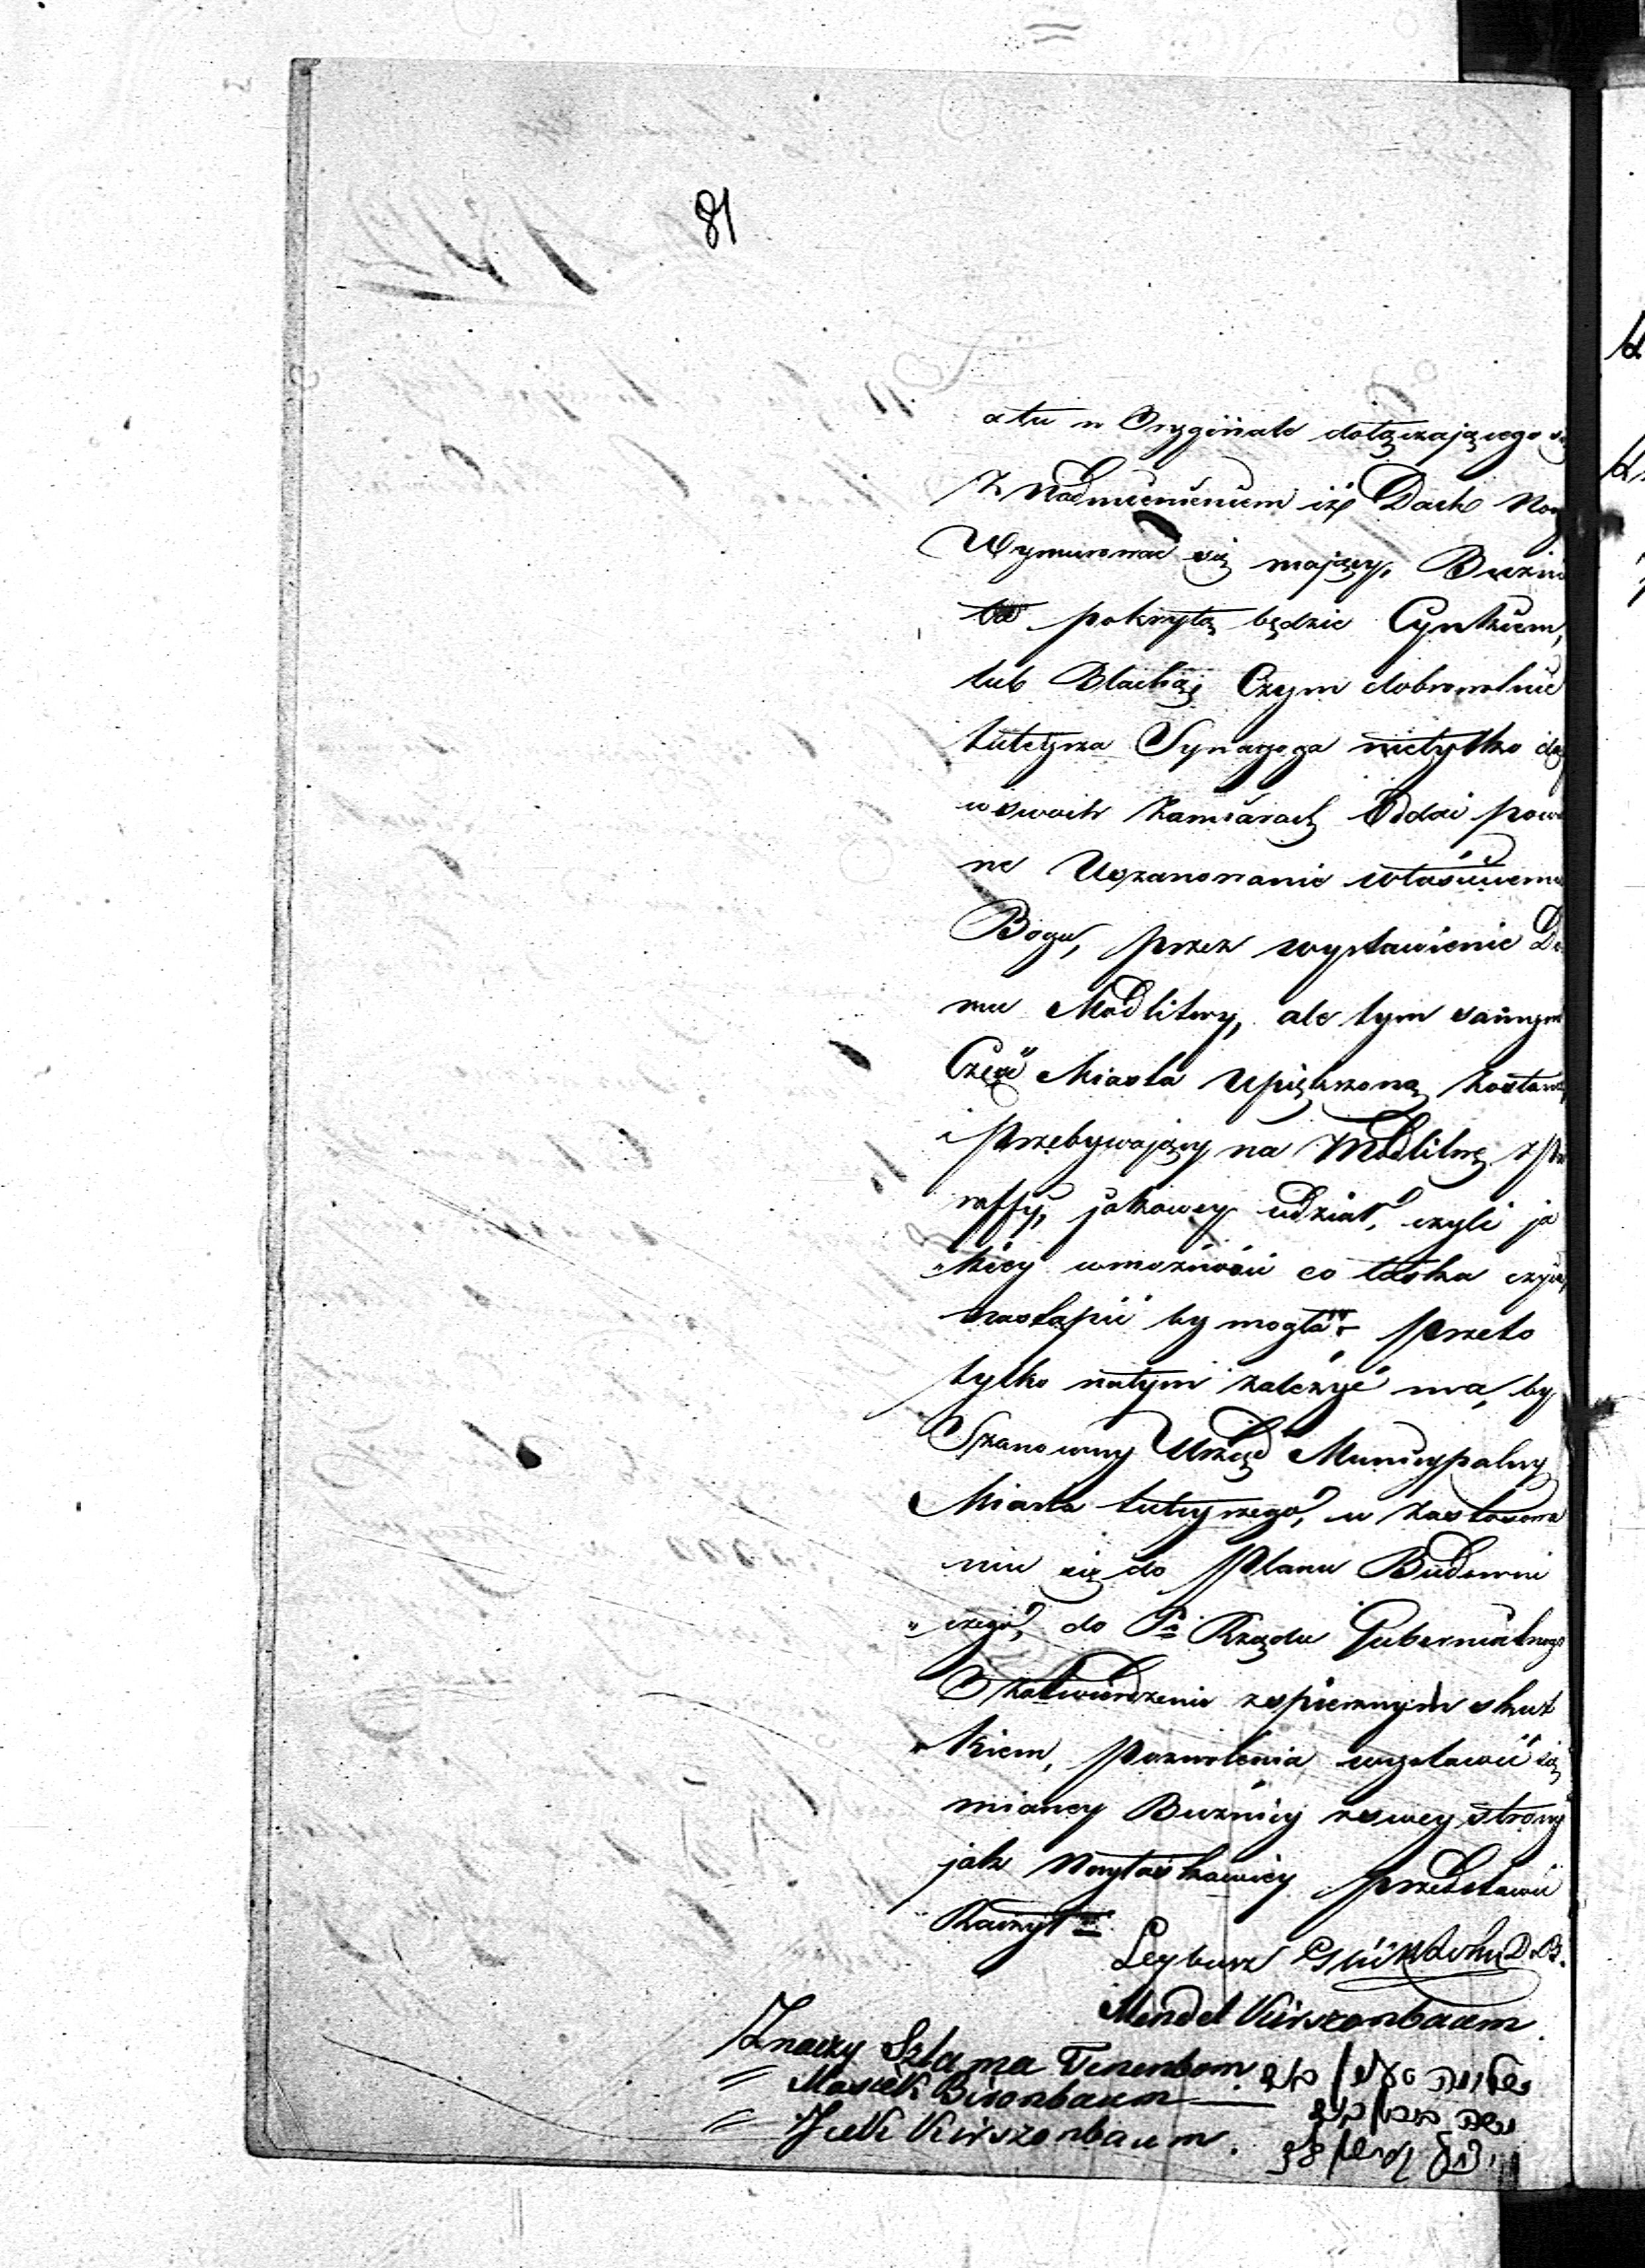 81
aktu w Oryginale dołączającego
z Nadmienieniem iż Dach
Wymurować się mający, Bużni
pokrytą będzie Cynkiem,
lub Blachą; Czym dobrowolnie
tuteysza Synagoga nietylko
w swoich Zamiarach Odda pow
ne Uszanowanie właściwemu
Bogu, przez wystawienie Do
mu Modlitwy, ale tym samym
Część Miasta Upiększoną Zosta
i przebywający na Modlitwę z Pa
raffy, jakowey udział, czyli ja
kiey wmożności co łaska
nastąpić by mogła - przeto
tylko natym zależyć ma, by
Szanowny Urząd Municypalny
Miasta tuteyszego, w zastosowa
niu się do Planu Budowni
czego, do Rządu Gubernialnego
O zatwierdzenie zespiesznym skut
kiem, pozwolenia wystawić się
mianey Bużnicy zswey strony
jak Nayłaskawiey przedstawić
Raczył
Leybusz
Mendel Kirszonbaum
Znaczy Szlama Tenenbom
" Mosiek Bironbaum
" Icek Kirszonbaum.